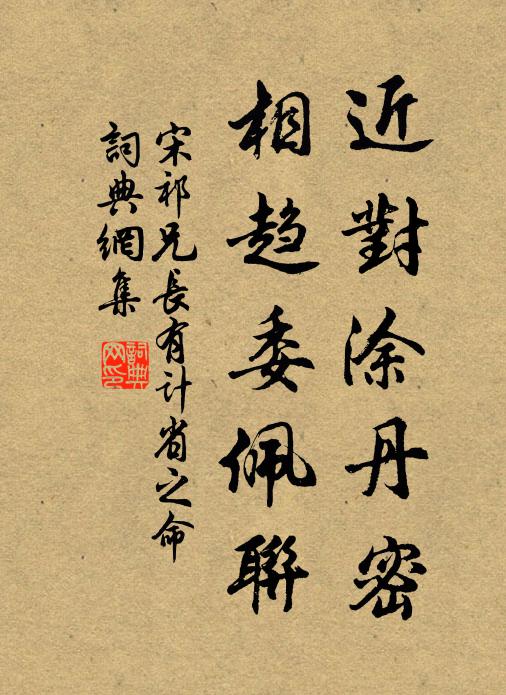 近對涂丹密
相趋委佩聯
宋祁兄長有计省之命
詞典網集
詞典網印